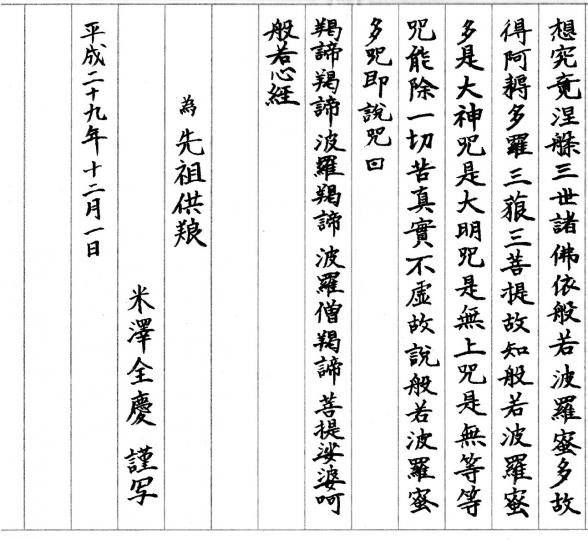 想究竟涅槃三世諸佛依般若波羅蜜多故
得阿耨多羅三藐三菩提故知般若波羅蜜
多是大神咒是大明咒是無上咒是無等等
咒能除一切苦真實不虚故説般若波羅蜜
多咒即説咒曰
羯諦羯諦波羅羯諦 波羅僧羯諦 菩提娑婆呵
般若心経
為先祖供粮
米澤全慶 謹写
平成二十九年十二月一日